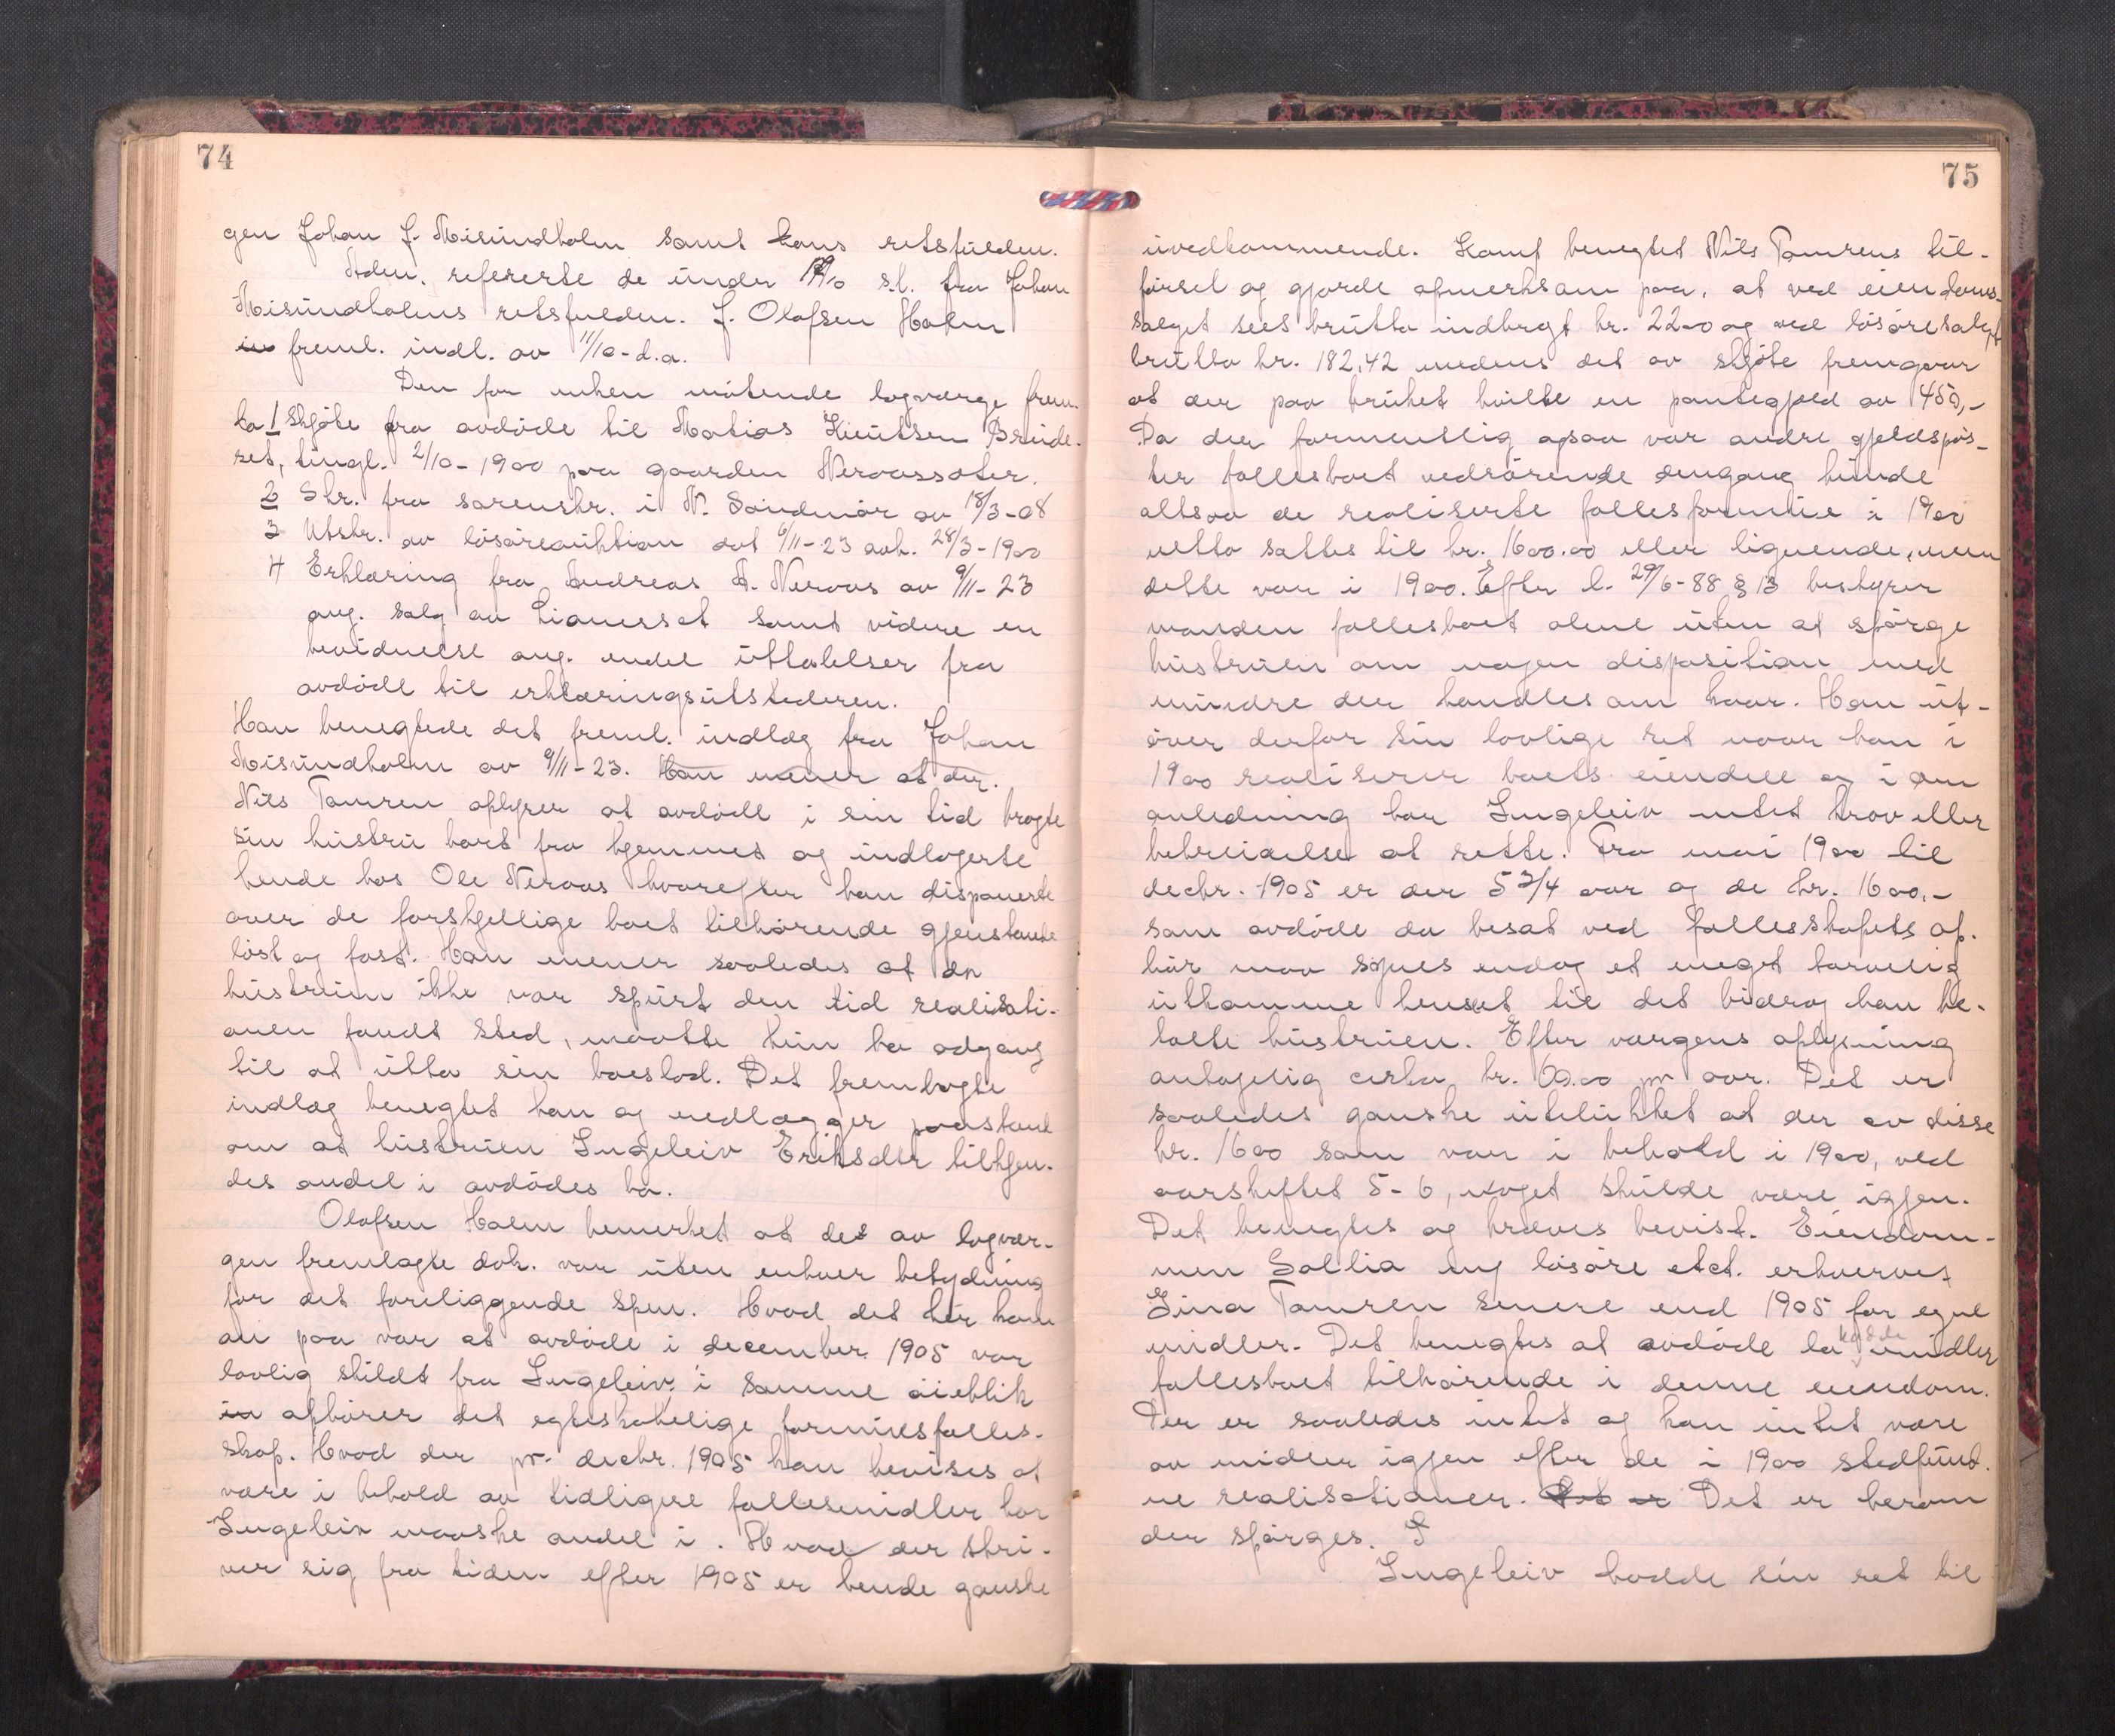 74
gen Johan J. Misundholm samt hans retsfulden.
Adm. refererte de under 17/10 s.l. fra Johan
Misundholms retsfulden. J. Olafsen Holm
freml. indl. av 11/10 - d.a.
Den for enken møtende lagværge frem-
la 1 Skjøte fra avdøde til Matias Knutsen Brude-
set, tingl. 2/10 - 1900 paa gaarden Nervassæter.
2 Skr. fra sorenskr. i N. Søndmør av 18/3 - 08
3 Utskr. av løsøreauktion dat 6/11 - 23 avh. 28/3 - 1900
4 Erklæring fra Andreas A. Nervaas av 9/11 - 23
ang. salg av Lianesset samt videre en
bevidnelse ang. endel uttalelser fra
avdøde til erklæringsutstederen.
Han benegtede det freml. indlæg fra Johan
Misundholm av 9/11 - 23. Han mener at der.
Nils Tomren oplyser at avdøde i sin tid bragte
sin hustru bort fra hjemmet og indlogerte
hende hos Ole Nervaas hvorefter han disponerte
over de forskjellige boet tilhørende gjenstande
løst og fast. Han mener saaledes at da
hustruen ikke var spurt den tid realisati-
onen fandt sted, maatte hun ha adgang
til at utta sin boeslod. Det frembragte
indlæg benegtet han og nedlægger paastand
om at hustruen Ingeleiv Eriksdtr tilkjen-
des andel i avdødes bo.
Olafsen Holm bemerket at det av lagvær-
gen fremlagte dok. var uten enhver betydning
for det foreliggende spm. Hvad det her kom
an paa var at avdøde i december 1905 var
lovlig skildt fra Ingeleiv i samme øieblik
ophører det egteskabelige formuesfælles-
skap. Hvad der pr. decbr. 1905 kan bevises at
være i behold av tidligere fællesmidler har
Ingeleiv maaske andel i. Hvad der skri-
ver sig fra tiden efter 1905 er hende ganske
75
uvedkommende. Komf benegtet Nils Tomrens til-
førsel og gjorde opmerksom paa, at ved eiendoms-
salget sees brutto indbragt kr. 2200 og ved løsøresalget
brutto kr. 182,42 medens det av skjøte fremgaar
at der paa bruket hvilte en pantegjæld av 450,-
Da der formentlig ogsaa var andre gjeldspos-
ter fællesboet vedrørende dengang kunde
altsaa de realiserte fællesformue i 1900
netto sættes til kr. 1600.00 eller lignende, men
dette var i 1900. Efter l. 29/6 - 88 § 13 bestyrer
manden fællesboet alene uten at spørge
hustruen om nogen disposition med
mindre der handles om kaar. Han ut-
øver derfor sin lovlige ret naar han i
1900 realiserer boets eiendele og i den
anledning har Ingeleiv intet krav eller
bebreidelse at rette. Fra mai 1900 til
decbr. 1905 er der 5 3/4 aar og de kr. 1600,-
som avdøde da besat ved fællesskapets op-
hør maa synes endog et meget tarvelig
utkomme henset til det bidrag han be-
talte hustruen. Efter værgens oplysning
antagelig cirka kr. 60.00 pr aar. Det er
saaledes ganske utelukket at der av disse
kr. 1600 som var i behold i 1900, ved
aarskiftet 5-6, noget skulde være igjen.
Det benegtes og kræves bevist. Eiendom-
men Sollia og løsøre etct. erhvervet
Gina Tomren senere end 1905 for egne
midler. Det benegtes at avdøde la hadde midler
fællesboet tilhørende i denne eiendom.
Der er saaledes intet og kan intet være
av midler igjen efter de i 1900 stedfund-
ne realisationer. Det er Det er herom
der spørges.
Ingeleiv hadde sin ret til